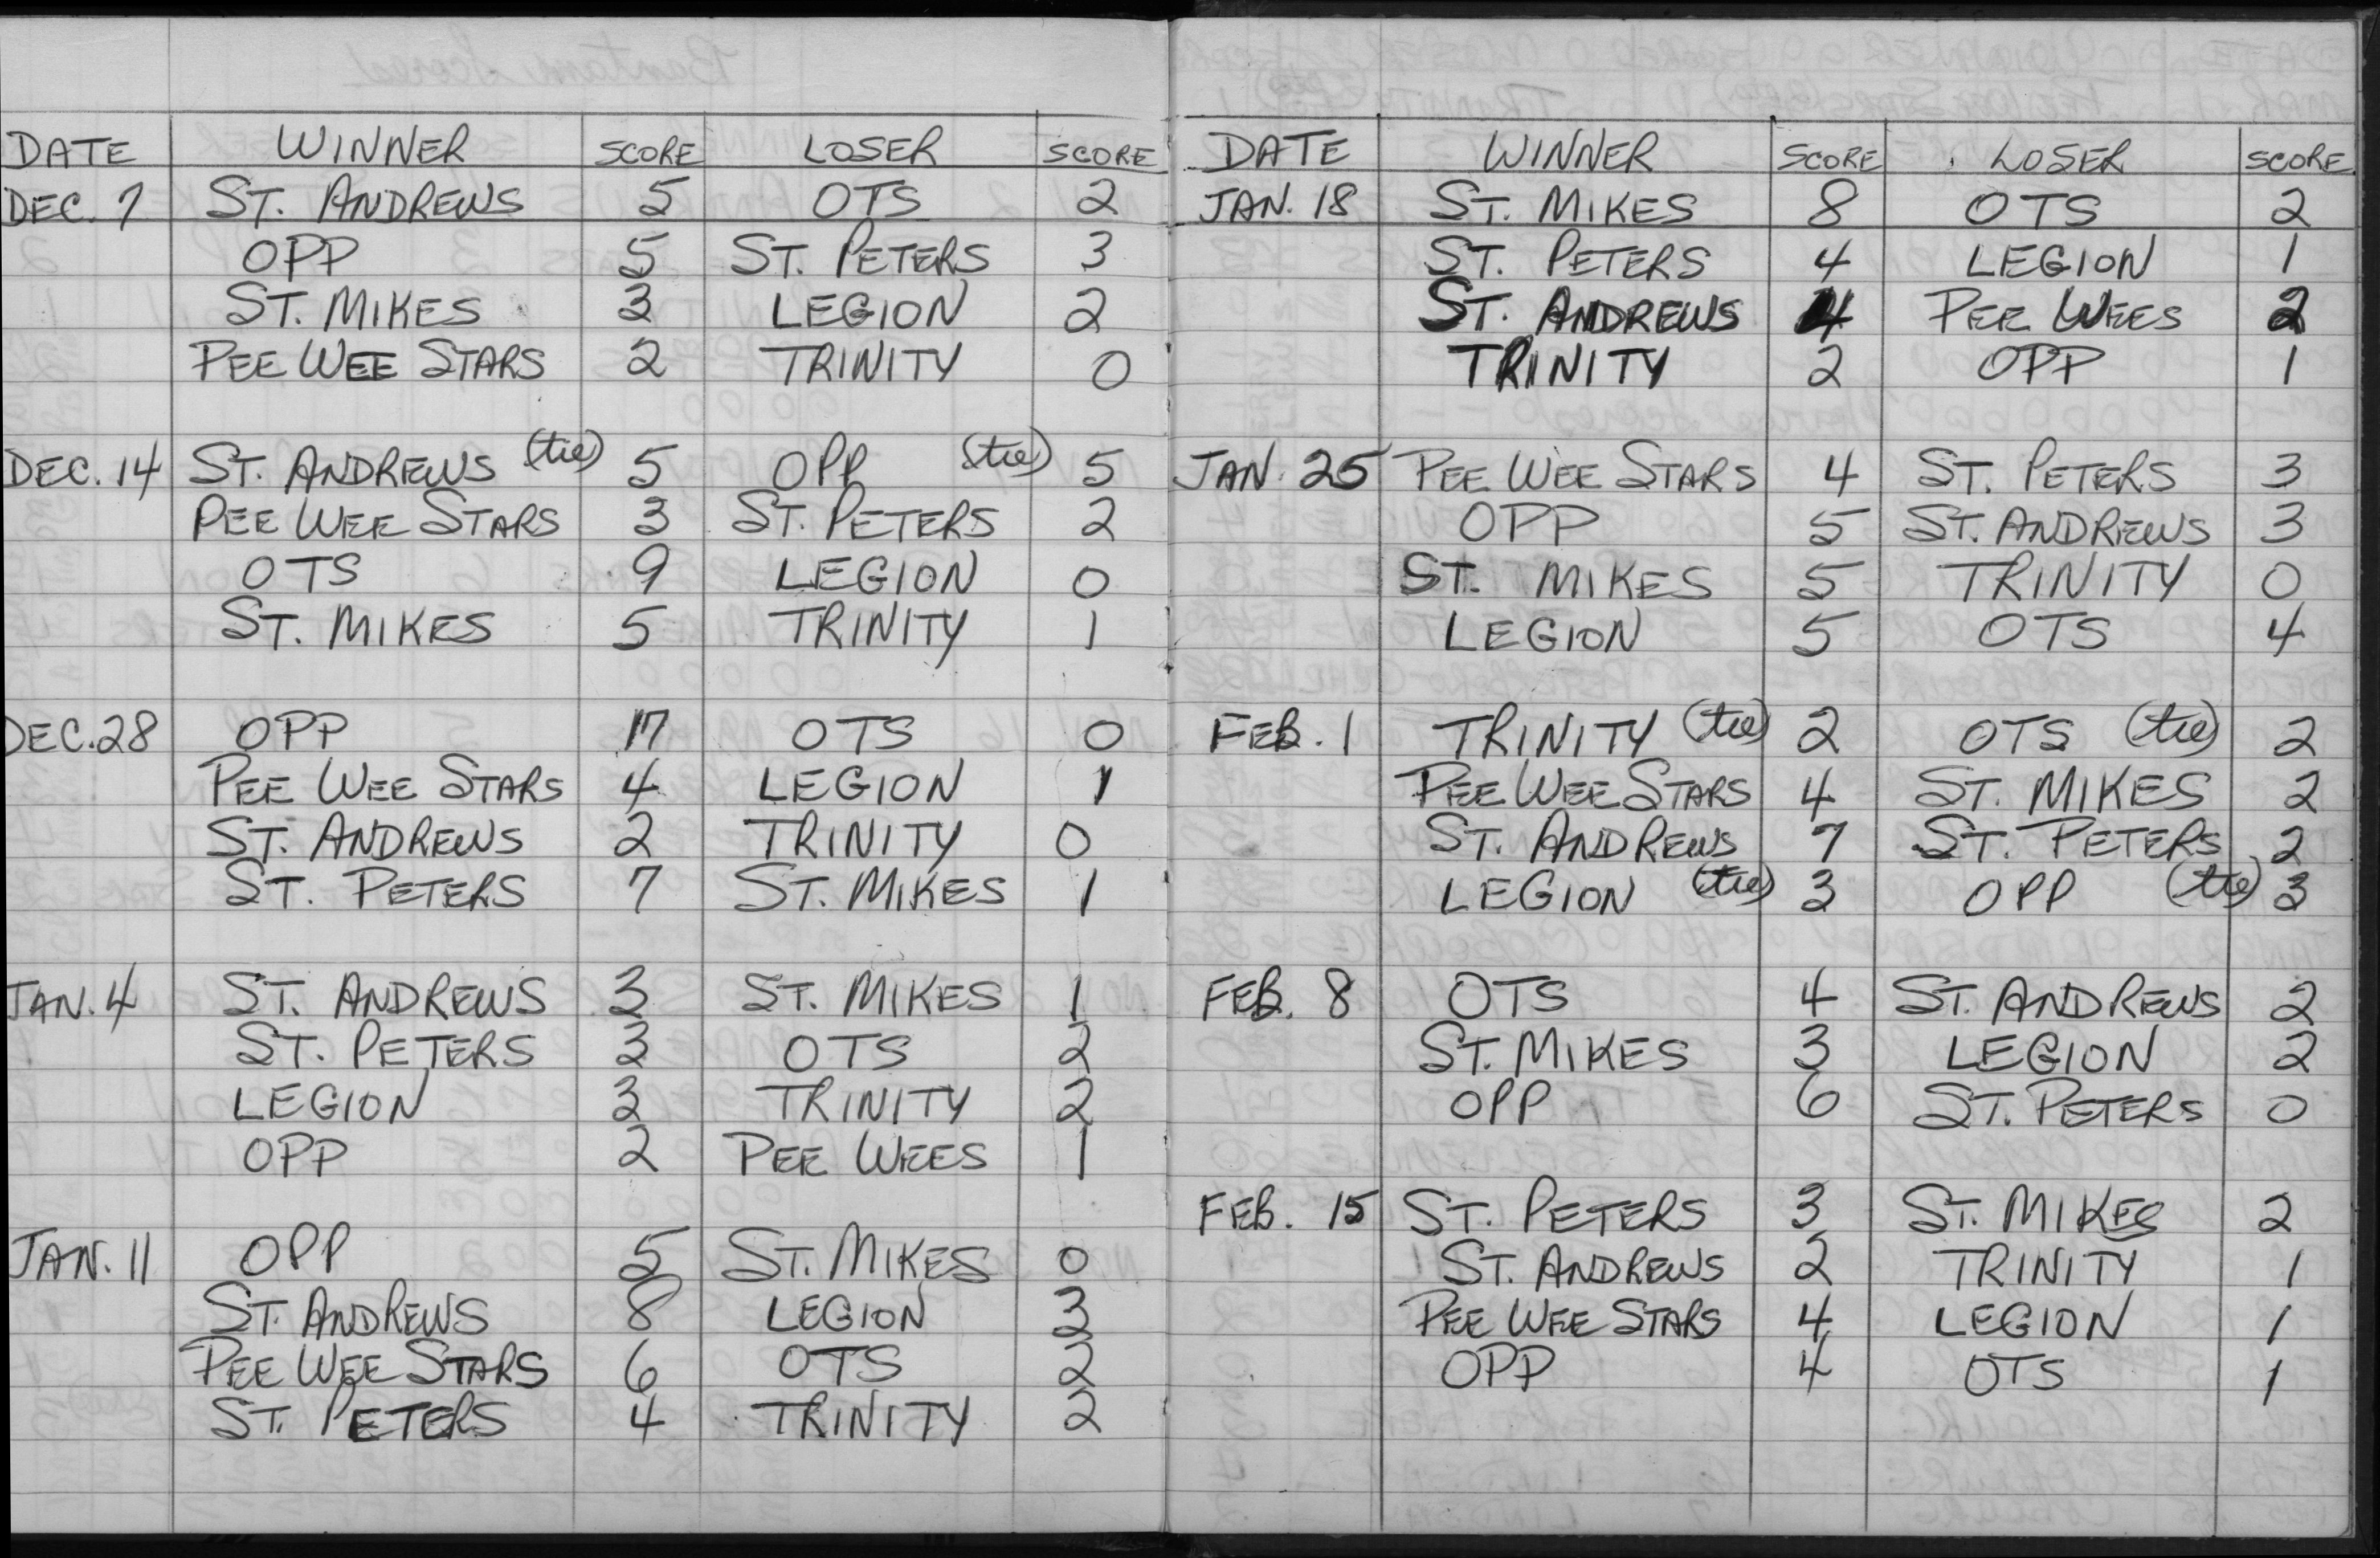 DATE WINNER SCORE LOSER SCORE
DEC. 7 ST. ANDREWS 5 OTS 2
OPP 5 ST. PETERS 3
ST. MIKES 3 LEGION 2
PEE WEE STARS 2 TRINITY 0
DEC. 14 ST. ANDREWS (tie) 5 OPP (tie) 5
PEE WEE STARS 3 ST. PETERS 2
OTS 9 LEGION 0
ST. MIKES 5 TRINITY 1
DEC. 28 OPP 17 OTS 0
PEE WEE STARS 4 LEGION 1
ST. ANDREWS 2 TRINITY 0
ST. PETERS 7 ST. MIKES 1
JAN. 4 ST. ANDREWS 3 ST. MIKES 1
ST. PETERS 3 OTS 2
LEGION 3 TRINITY 2
OPP 2 PEE WEES 1
JAN. 11 OPP 5 ST. MIKES 0
ST. ANDREWS 8 LEGION 3
PEE WEE STARS 6 OTS 2
ST. PETERS 4 TRINITY 2
DATE WINNER SCORE LOSER SCORE
JAN. 18 ST. MIKES 8 OTS 2
ST. PETERS 4 LEGION 1
ST. ANDREWS 4 PEE WEES 2
TRINITY 2 OPP 1
JAN. 25 PEE WEE STARS 4 ST. PETERS 3
OPP 5 ST. ANDREWS 3
ST. MIKES 5 TRINITY 0
LEGION 5 OTS 4
FEB. 1 TRINITY (tie) 2 OTS (tie) 2
PEE WEE STARS 4 ST. MIKES 2
ST. ANDREWS 7 ST. PETERS 2
LEGION (tie) 3 OPP (tie) 3
FEB. 8 OTS 4 ST. ANDREWS 2
ST. MIKES 3 LEGION 2
OPP 6 ST. PETERS 0
FEB. 15 ST. PETERS 3 ST. MIKES 2
ST. ANDREWS 2 TRINITY 1
PEE WEE STARS 4 LEGION 1
OPP 4 OTS 1